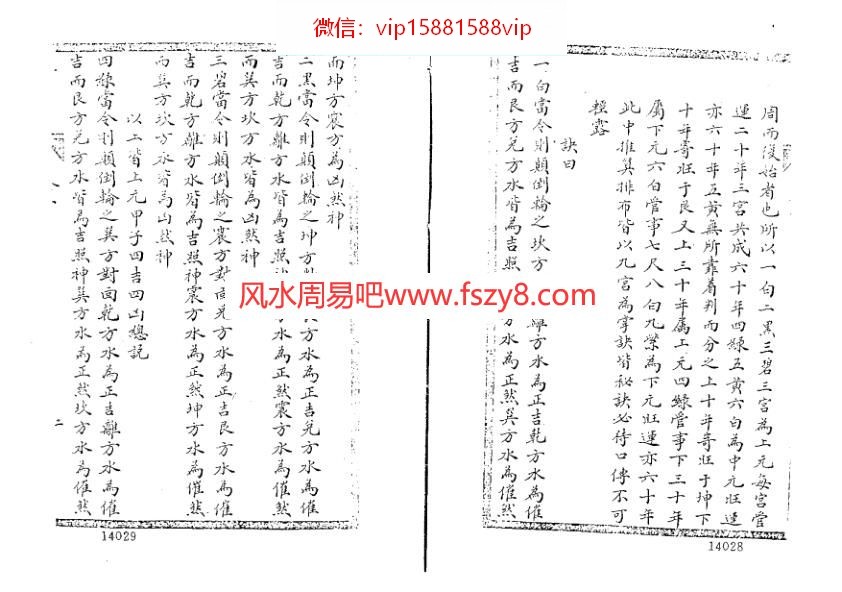 微信：vip15881588vip
周而復始者也所以一白二黑三碧三宮為上元每宮管
運二十年三宮共成六十年四綠五黃六白為中元旺運
亦六十年五黃無所靠着判而分之上十年寄旺于坤下
十年寄旺于艮又上三十年属上元四綠管事下三十年
屬下元六白管事七尺八白九紫為下元旺運亦六十年
此中推算排布皆以九宮為掌訣皆秘訣必待口傳不可
輕露
訣曰
一白當令則顛倒輪之坎方 方水為正吉乾方水為催
吉而艮方兌方水皆為吉照 方水為正煞巽方水為催煞
14028
而坤方震方為凶煞神
二黑當令則顛倒輪之坤方 方水為正吉兌方水為催
吉而乾方離方水皆為吉照 水為正煞震方水為催煞
而巽方坎方水皆為凶煞神
三碧當令則顛倒輪之震方對面兌方水為正吉艮方水為催
吉而乾方離方水皆為吉照神震方水為正煞坤方水為催煞
而巽方坎方水皆為凶煞神
以上皆上元甲子四吉四凶總訣
四綠當令則顛倒輪之巽方對面乾方水為正吉離方水為催
吉而艮方兌方水皆為吉照神巽方水為正煞坎方水為催煞
二
14029
风水周易吧www.fszy8.com